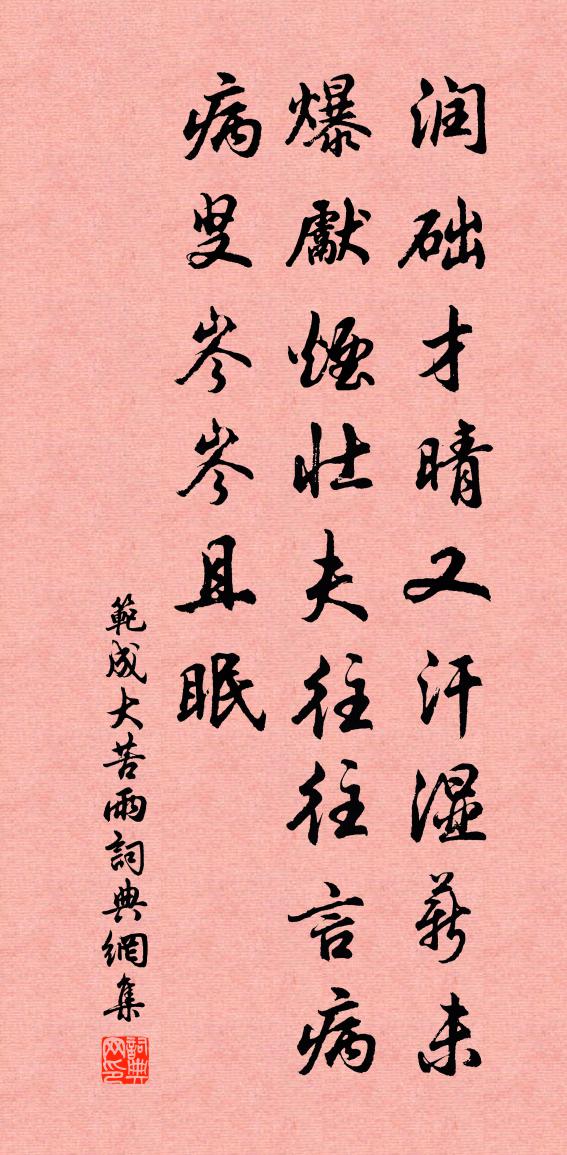 润础才晴又汗湿薪未
爆獻煙壮夫往往言病
病叟岑岑且眠
範成大苦雨詞典網集
詞典网印